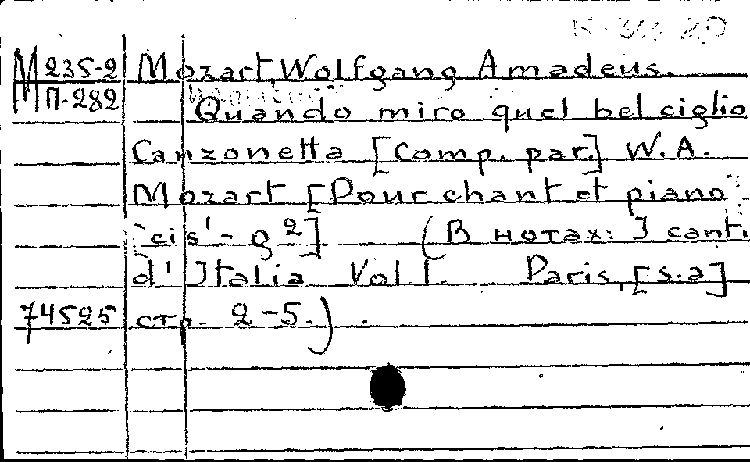 М 235-2 Mozart, Wolfgang Amadeus.
МП-282 Quando miro quel bel ciglio
Canzonetta [Comp. par.] W.A.
Mozart [Pour chant et piano
cis' - g2] (В нотах: I canti
d'Italia Vol I. Paris, [s.a]
74525 стр. 2-5.).